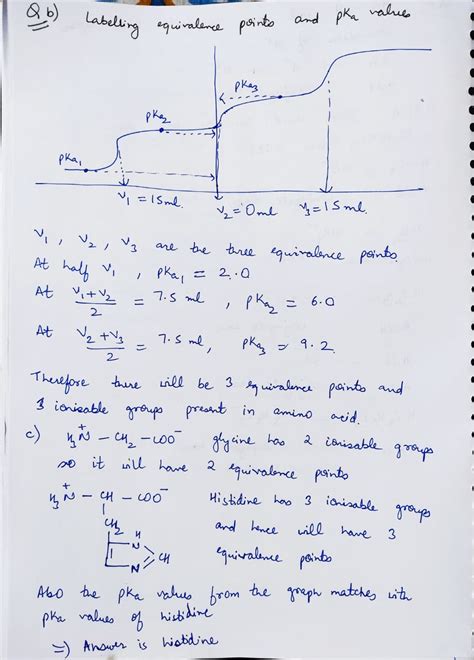 Q b) Labelling equivalence points and pKa values
pKa3
pKa2
pKa1
V1 = 15ml. V2 = 0ml V3 = 15ml.
V1, V2, V3 are the three equivalence points.
At half V1, pKa1 = 2.0
At V1+V2/2 = 7.5 ml, pKa2 = 6.0
At V2+V3/2 = 7.5 ml, pKa3 = 9.2.
Therefore there will be 3 equivalence points and
3 ionisable groups present in amino acid.
c) H3N+ – CH2 – COO– glycine has 2 ionisable groups
so it will have 2 equivalence points
H3N+ – CH – COO– Histidine has 3 ionisable groups
CH2 and hence will have 3
H
N
CH equivalence points
N
Also the pKa values from the graph matches with
pKa values of histidine
=) Answer is histidine